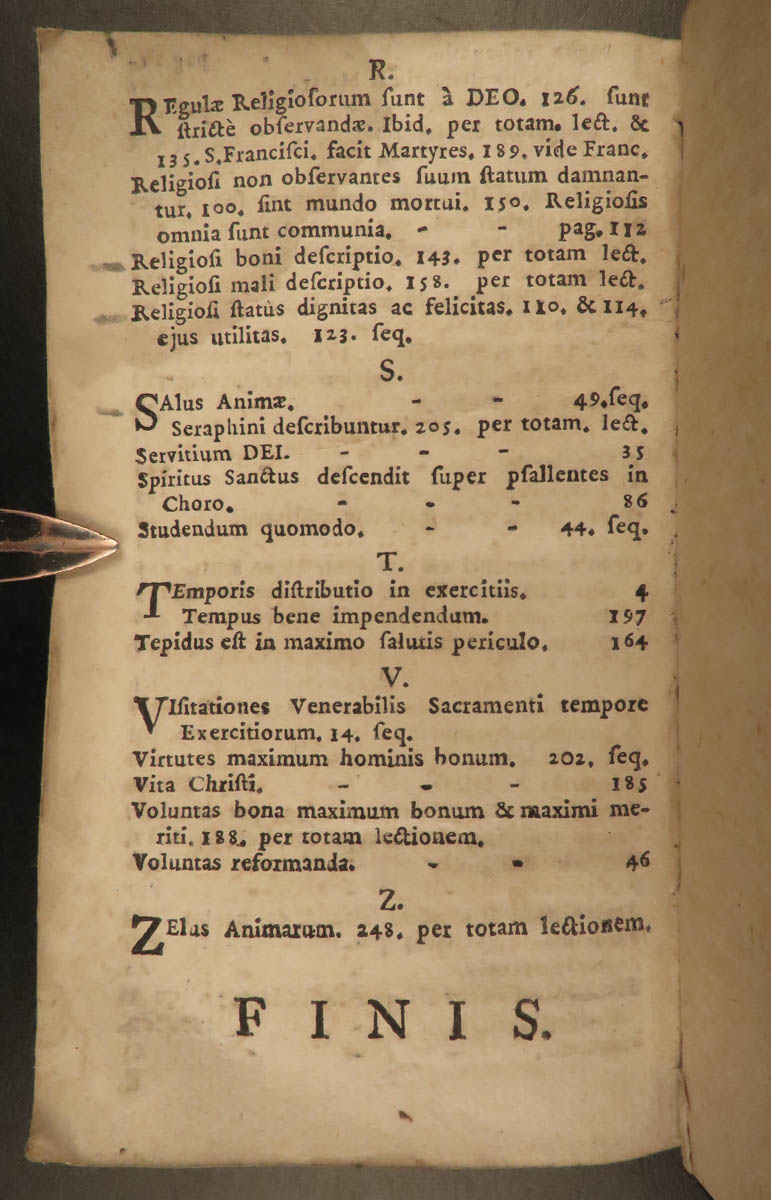 R.
REgulæ Religioſorum ſunt à DEO. 126. ſunt
ſtrictè obſervandæ. Ibid. per totam. lect. &
135. S. Franciſci. facit Martyres. 189. vide Franc.
Religioſi non obſervantes ſuum ſtatum damnan-
tur. 100. ſint mundo mortui. 150. Religioſis
omnia ſunt communia. - - pag. 112
Religioſi boni deſcriptio. 143. per totam lect.
Religioſi mali deſcriptio. 158. per totam lect.
Religioſi ſtatùs dignitas ac felicitas. 110. & 114.
ejus utilitas. 123. ſeq.
S.
SAlus Animæ. - - 49. ſeq.
Seraphini deſcribuntur. 205. per totam. lect.
Servitium DEI. - - - 35
Spiritus Sanctus deſcendit ſuper pſallentes in
Choro. - - - 86
Studendum quomodo. - - 44. ſeq.
T.
TEmporis diſtributio in exercitiis. 4
Tempus bene impendendum. 197
Tepidus eſt in maximo ſalutis periculo. 164
V.
VIſitationes Venerabilis Sacramenti tempore
Exercitiorum. 14. ſeq.
Virtutes maximum hominis bonum. 202. ſeq.
Vita Chriſti. - - - 185
Voluntas bona maximum bonum & maximi me-
riti. 188. per totam lectionem.
Voluntas reformanda. - - 46
Z.
ZElus Animarum. 248. per totam lectionem.
FINIS.